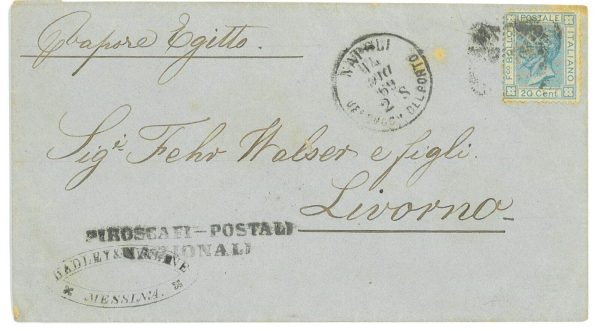 Vapore Egitto.
NAPOLI
14
GIU
69
2 S
DEL PORTO
FCO BOLLO POSTALE ITALIANO
20 Cent.
Sigi Fehr Walser e figli.
Livorno
PIROSCAFI-POSTALI
NAZIONALI
MESSINA.